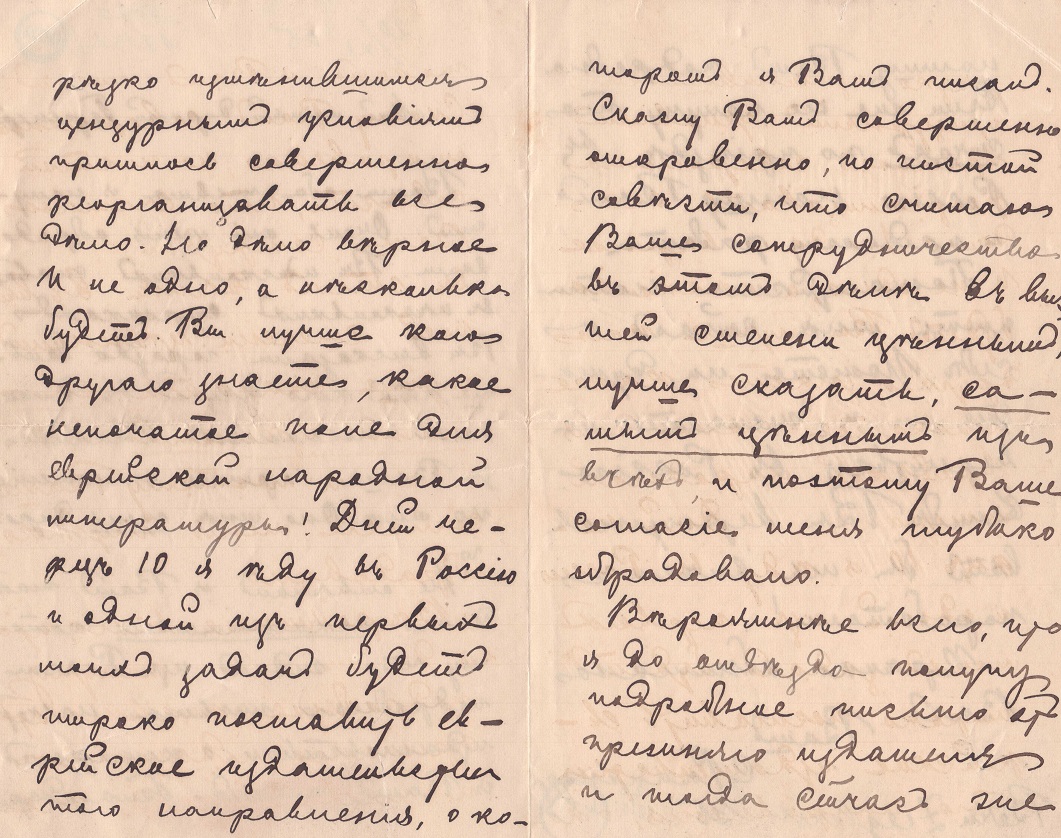 рѣзко измѣнившимся
цензурнымъ условіямъ
пришлось совершенно
реорганизовать все
дѣло. Но дѣло вѣрное
И не одно, а нѣсколько
будетъ. Вы лучше кого
другого знаете, какое
непочатое поле для
еврейской народной
литературы! Дней че-
резъ 10 я ѣду въ Россію
и одной изъ первыхъ
моихъ задачъ будетъ
широко поставить ев-
рейское издательство
того направленія, о ко-
торомъ я Вамъ писалъ.
Скажу Вамъ совершенно
откровенно, по чистой
совѣсти, что считаю
Ваше сотрудничество
въ этомъ дѣлѣ въ выс
шей степени цѣннымъ,
лучше сказать, са-
мымъ цѣннымъ изо
всѣхъ, и поэтому Ваше
согласіе меня глубоко
обрадовало.
Вѣроятнѣе всего, что
я до отъѣзда получу
подробное письмо от
прежняго издателя
и тогда сейчасъ же